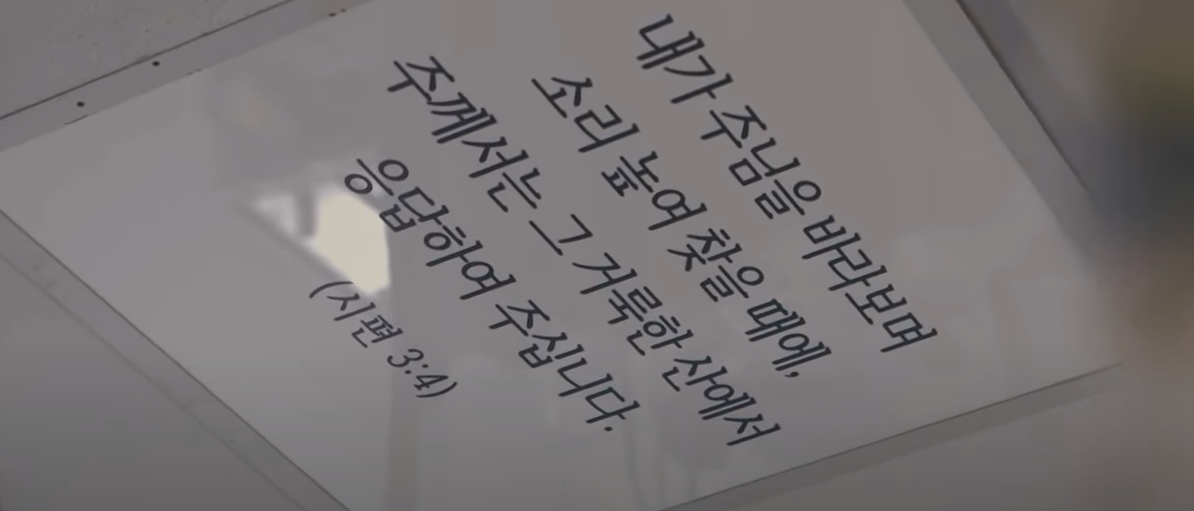 내가 주님을 바라보며
소리 높여 찾을 때에,
주께서는 그 거룩한 산에서
응답하여 주십니다.
(시편 3:4)